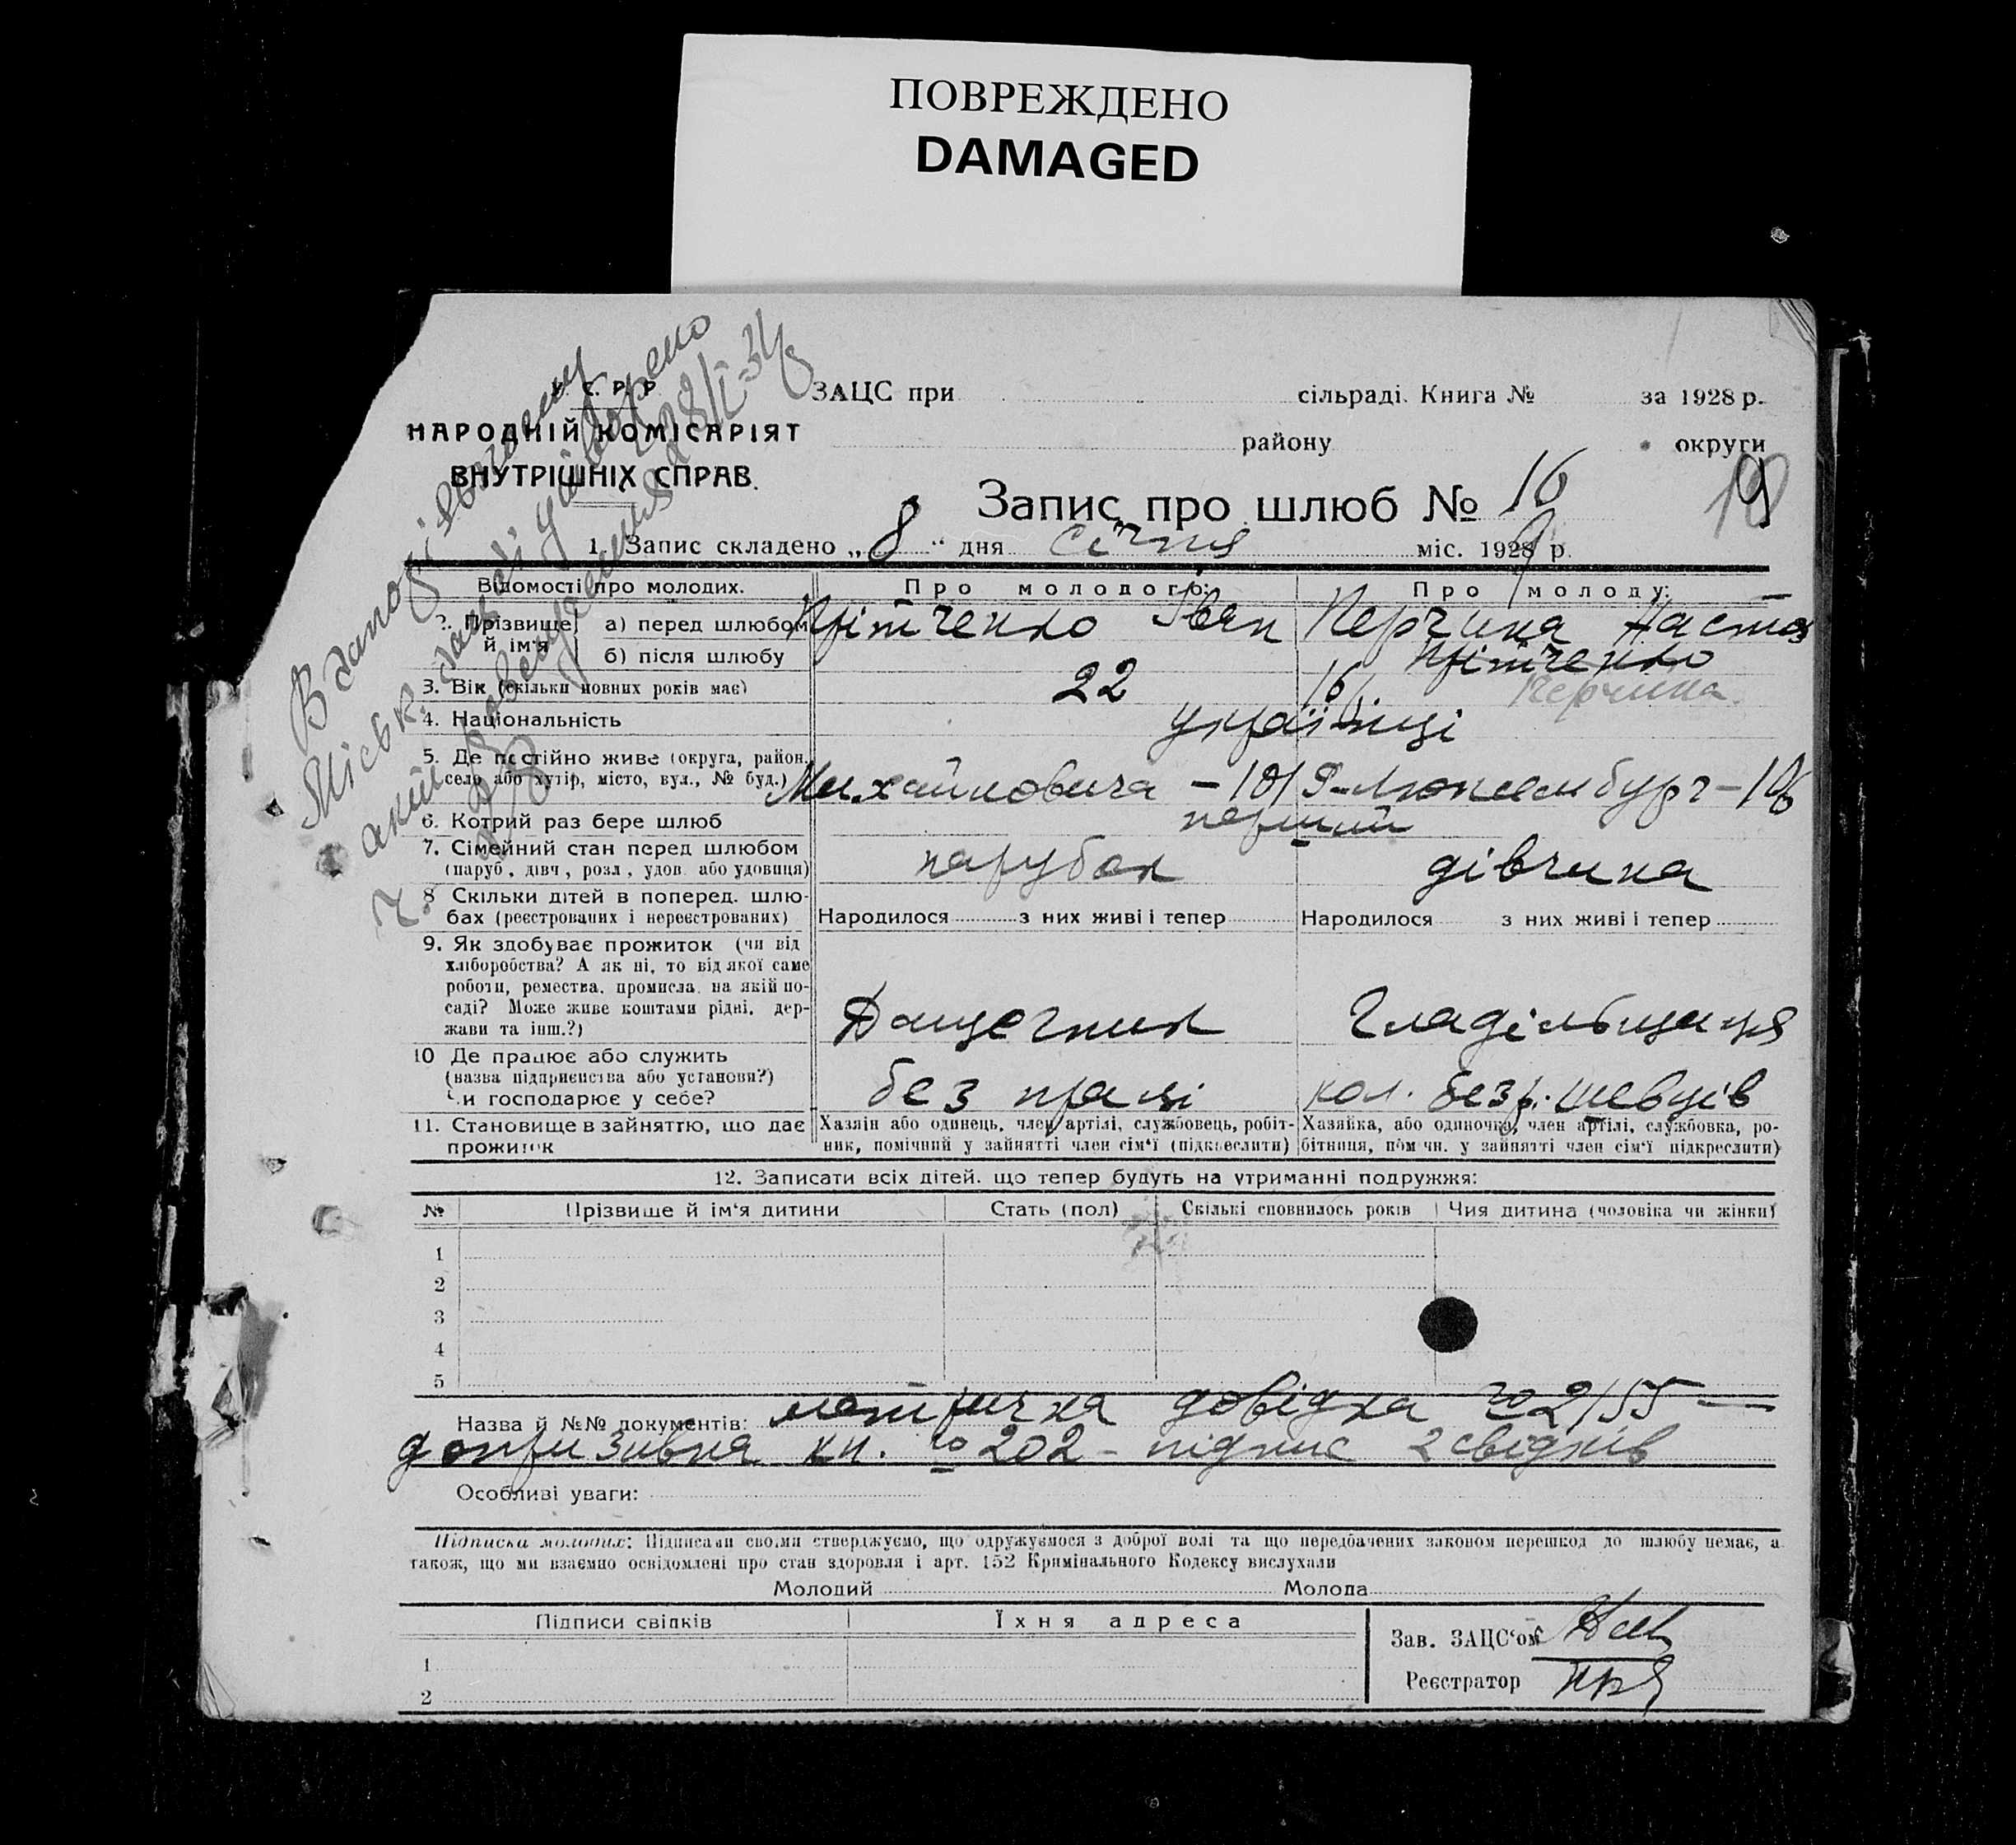 ПОВРЕЖДЕНО
DAMAGED
У. С. Р. Р.
НАРОДНІЙ КОМІСАРІЯТ
ВНУТРІШНІХ СПРАВ.
ЗАЦС при сільраді. Книга № за 1928 р.
району округи
Запис про шлюб № 16
19
1. Запис складено „8“ дня січня міс. 1929 р.
Відомості про молодих. Про молодого: Про молоду:
2. Прізвище й ім'я
а) перед шлюбом Іван Перчина Настя
б) після шлюбу Перчина
3. Вік (скільки повних років має) 22 16
4. Національність українці
5. Де постійно живе (округа, район, село або хутір, місто, вул., № буд.) Михайловича – 101 Р-Люксембург – 106
6. Котрий раз бере шлюб перший
7. Сімейний стан перед шлюбом парубок дівчина
(паруб., дівч., розл., удов. або удовиця)
8 Скільки дітей в поперед. шлюбах (реєстрованих і нереєстрованих) Народилося з них живі і тепер Народилося з них живі і тепер
9. Як здобуває прожиток (чи від
хліборобства? А як ні, то від якої саме
роботи, ремества, промисла, на якій по-
саді? Може живе коштами рідні, дер-
жави та інш.?) Гладільщиця
10 Де працює або служить
(назва підприємства або установи?)
Чи господарює у себе? без праці кол. безр. шевців
11. Становище в зайняттю, що дає
прожиток
Хазяін або одинець, член артілі, службовець, робіт-
ник, помічний у зайнятті член сім'ї (підкреслити)
Хазяйка, або одиночка, член артілі, службовка, ро-
бітниця, пом чн. у зайнятті член сім'ї підкреслити)
12. Записати всіх дітей, що тепер будуть на утриманні подружжя:
№ Прізвище й ім'я дитини Стать (пол) Скількі сповнилось років Чия дитина (чоловіка чи жінки)
1
2
3
4
5
Назва й №№ документів: метрична довідка № 2/55
допризивна кн. № 202 – підпис 2 свідків
Особливі уваги:
Підписка молодих: Підписами своїми стверджуємо, що одружуємося з доброї волі та що передбачених законом перешкод до шлюбу немає, а
також, що ми взаємно освідомлені про стан здоровля і арт. 152 Кримінального Кодексу вислухали
Молодий Молода
Підписи свідків Їхня адреса
1
2
Зав. ЗАЦС'ом
Реєстратор